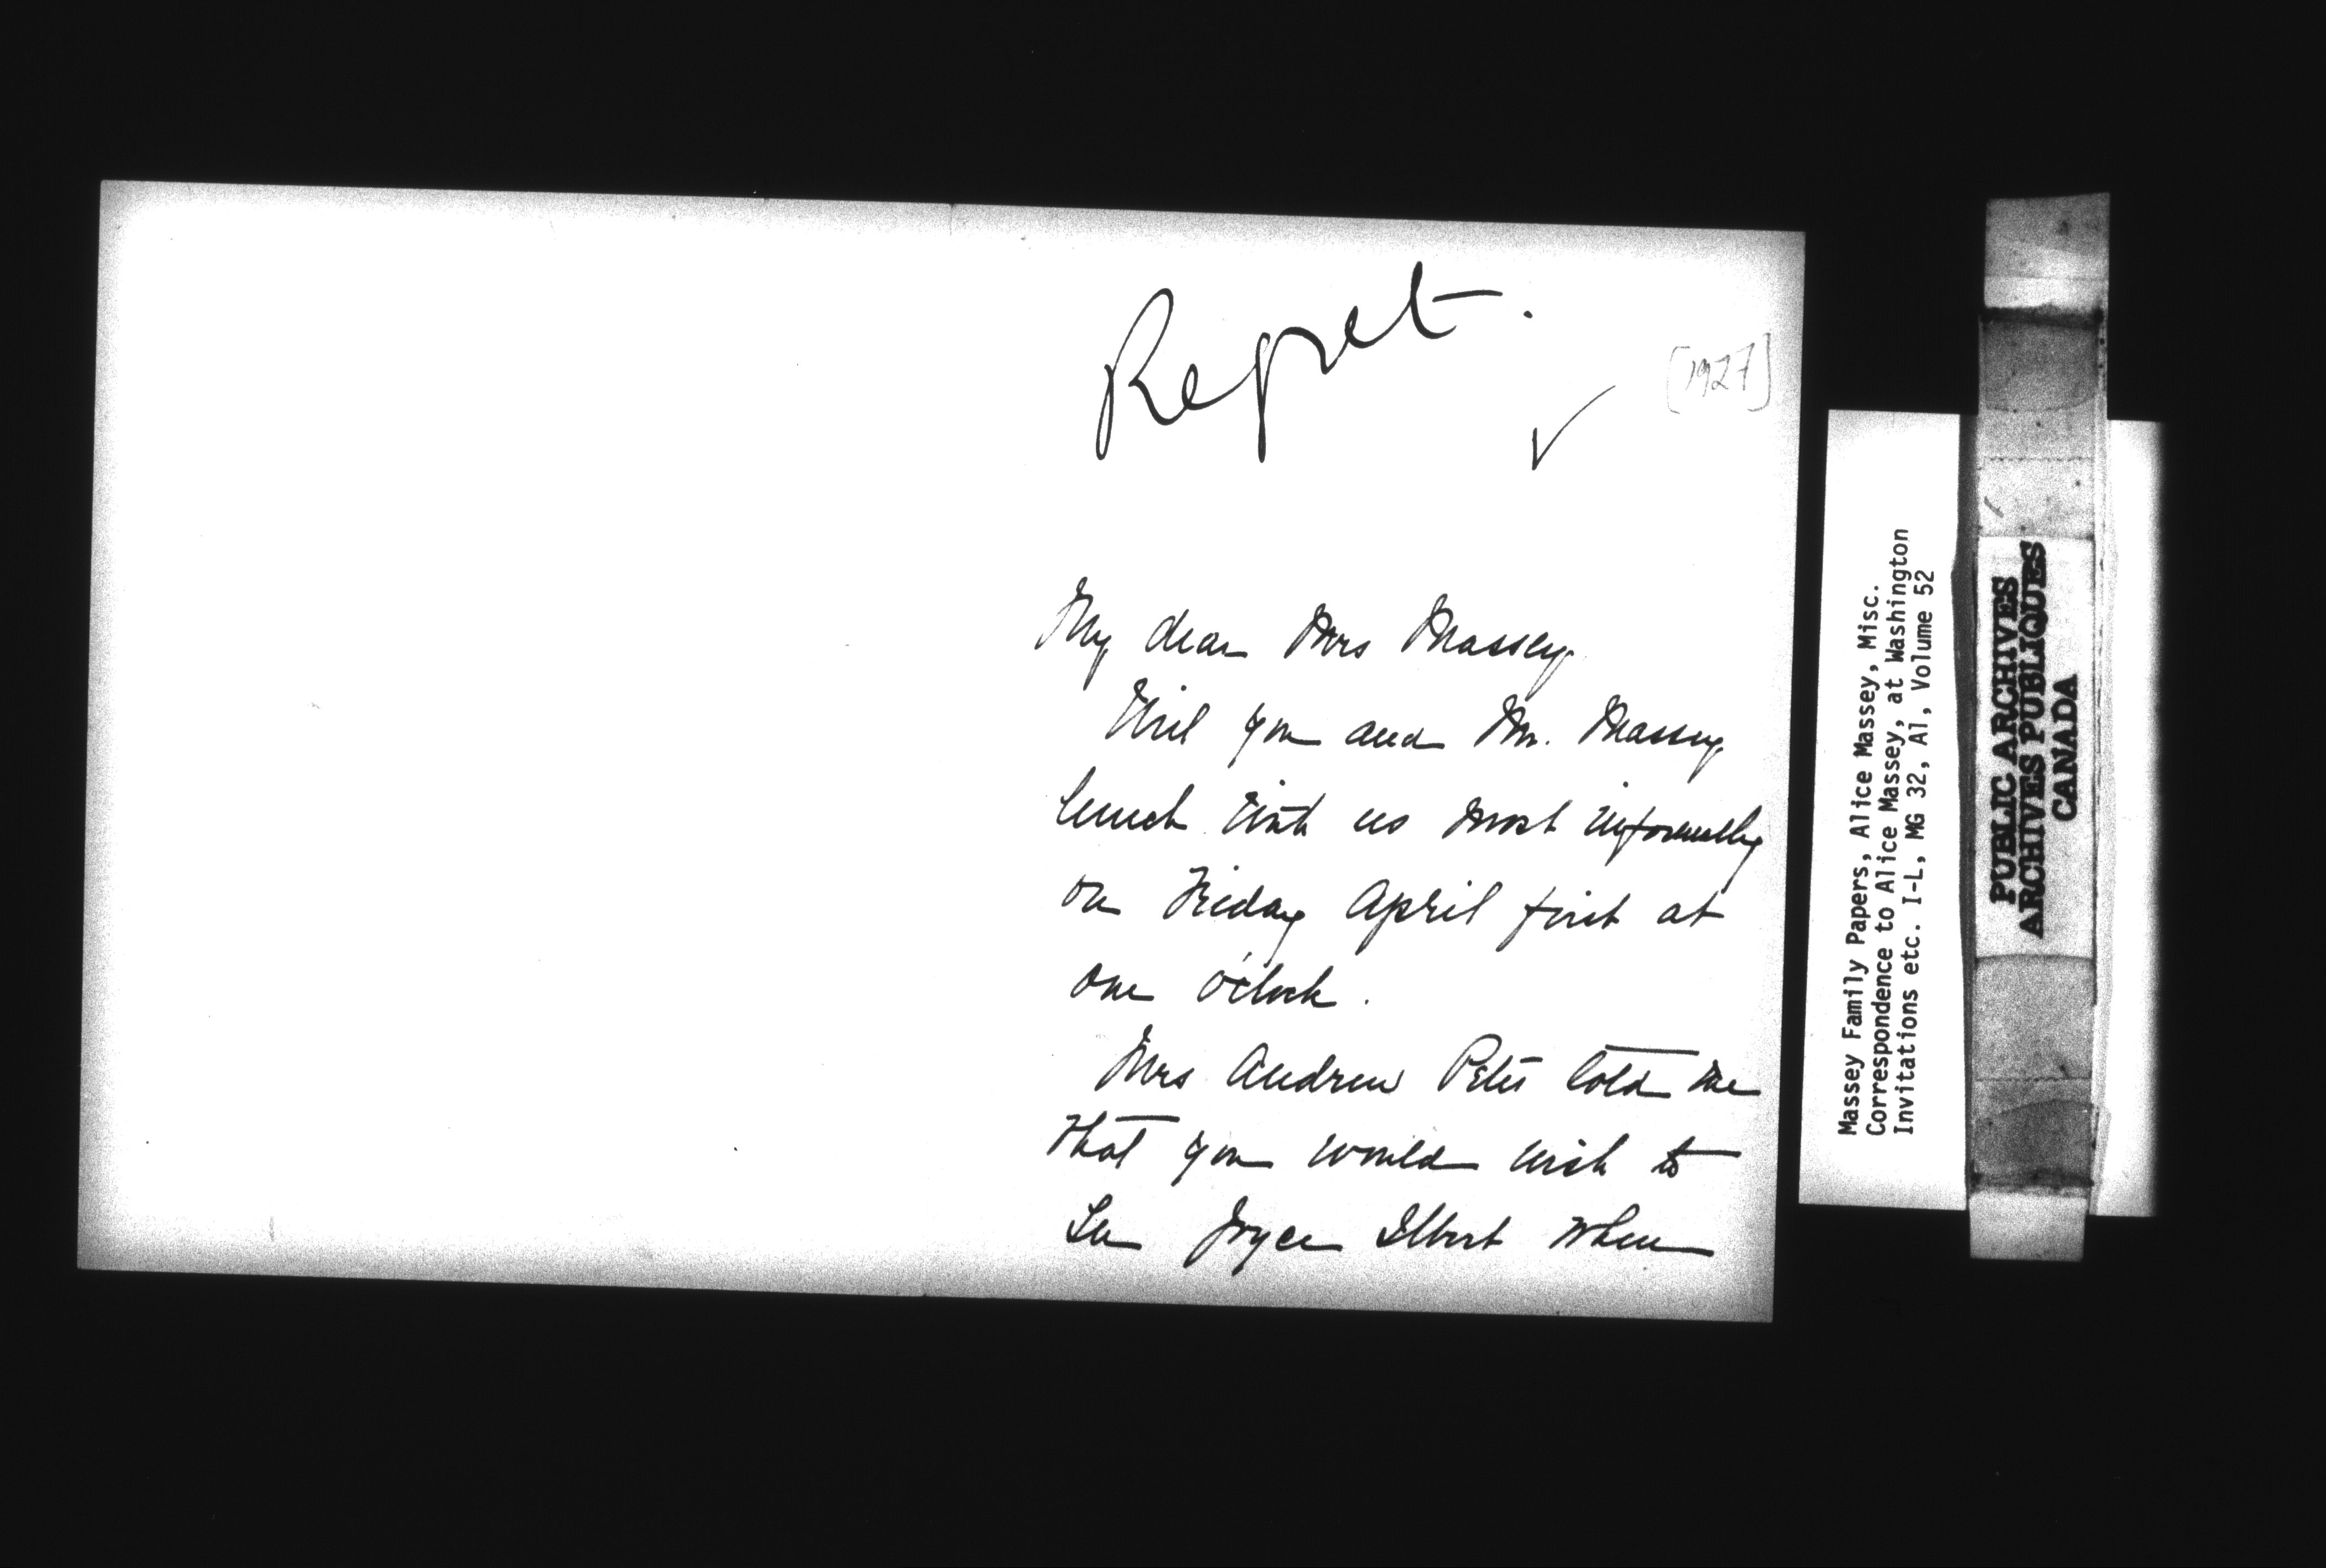 Regret.
[1927]
✓
My dear Mrs Massey
Will you and Mr. Massey
lunch with us most informally
on Friday April first at
one o'clock.
Mrs Andrew Peters told me
that you would wish to
see Joyce Ilbert when
Massey Family Papers, Alice Massey, Misc.
Correspondence to Alice Massey, at Washington
Invitations etc. I-L, MG 32, A1, Volume 52
PUBLIC ARCHIVES
ARCHIVES PUBLIQUES
CANADA